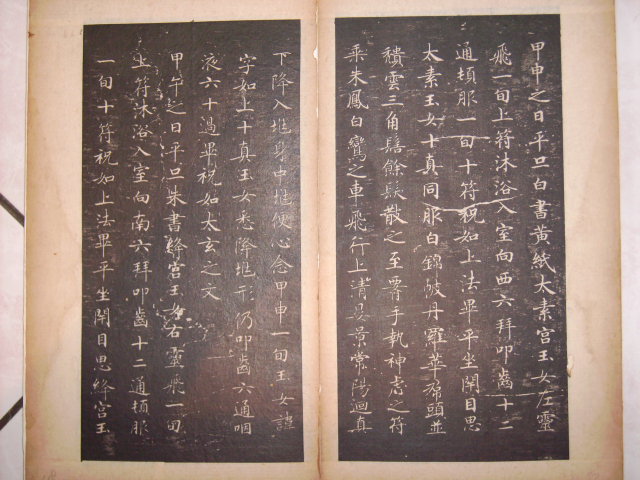 甲申之日平旦白書黃紙太素宮玉女左靈
飛一旬上符沐浴入室向西六拜叩齒十二
通頓服一旬十符祝如上法畢平坐閉目思
太素玉女十真同服白錦帔丹羅華帬頭並
穨雲三角髻餘髮散之至要手執神虎之符
乘朱鳳白鸞之車飛行上清晏景常陽迴真
下降入我身中我便心念甲申一旬玉女諱
字如上十真玉女悉降我形仍叩齒六通咽
液六十過畢祝如太玄之文
甲午之日平旦朱書絳宮玉女右靈飛一旬
上符沐浴入室向南六拜叩齒十二通頓服
一旬十符祝如上法畢平坐閉目思絳宮玉